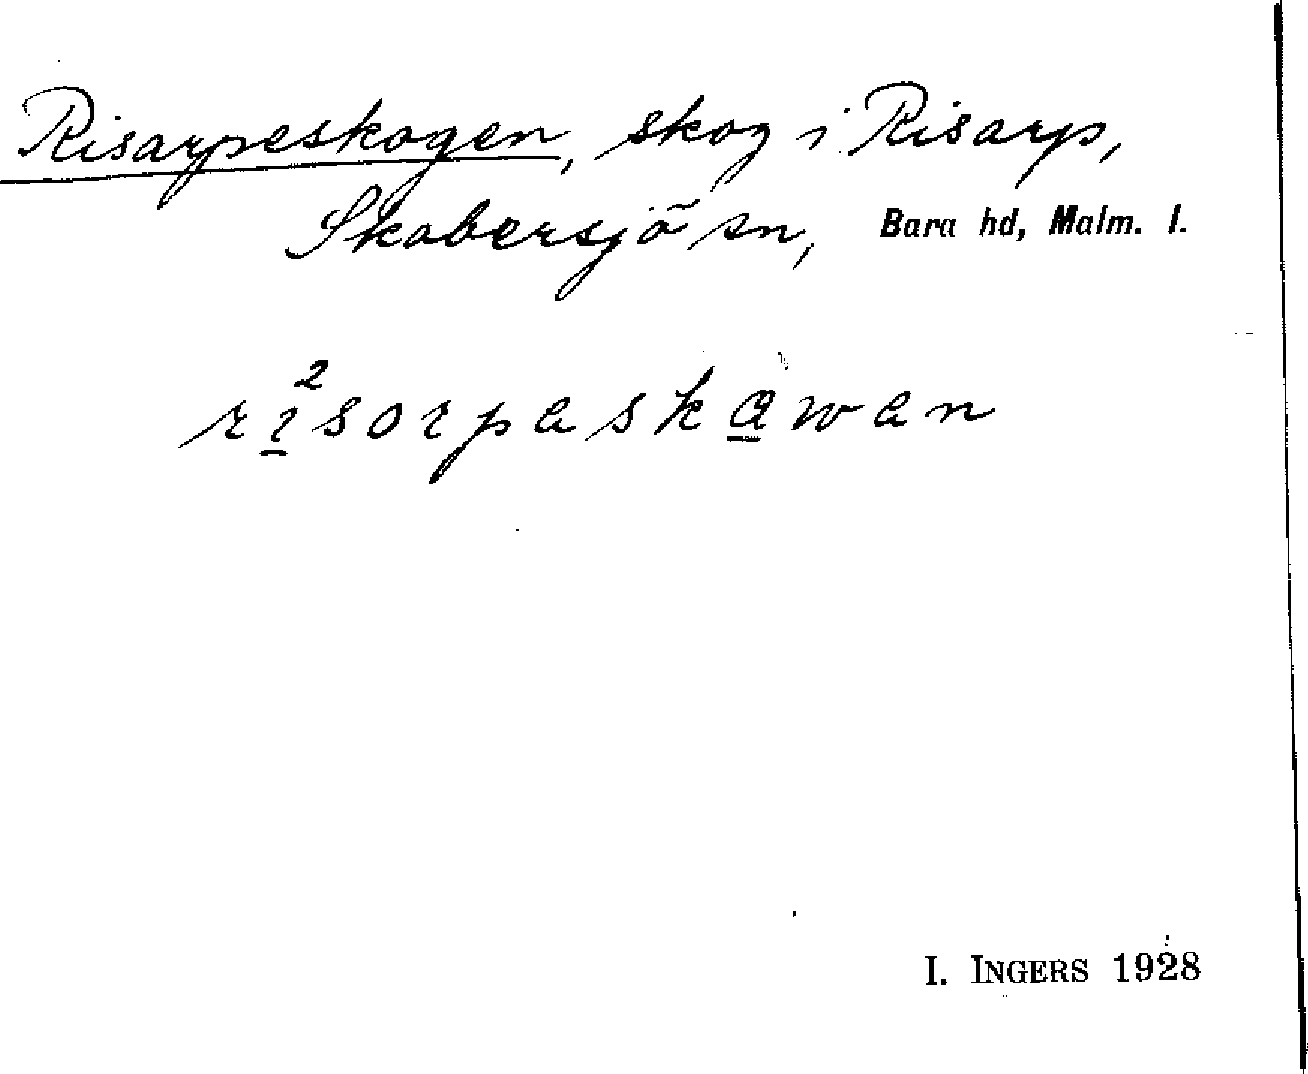 Risarpeskogen, skog i Risarp,
Skabersjö sn, Bara hd, Malm. l.
rı²sorpaskawan
I. INGERS 1928